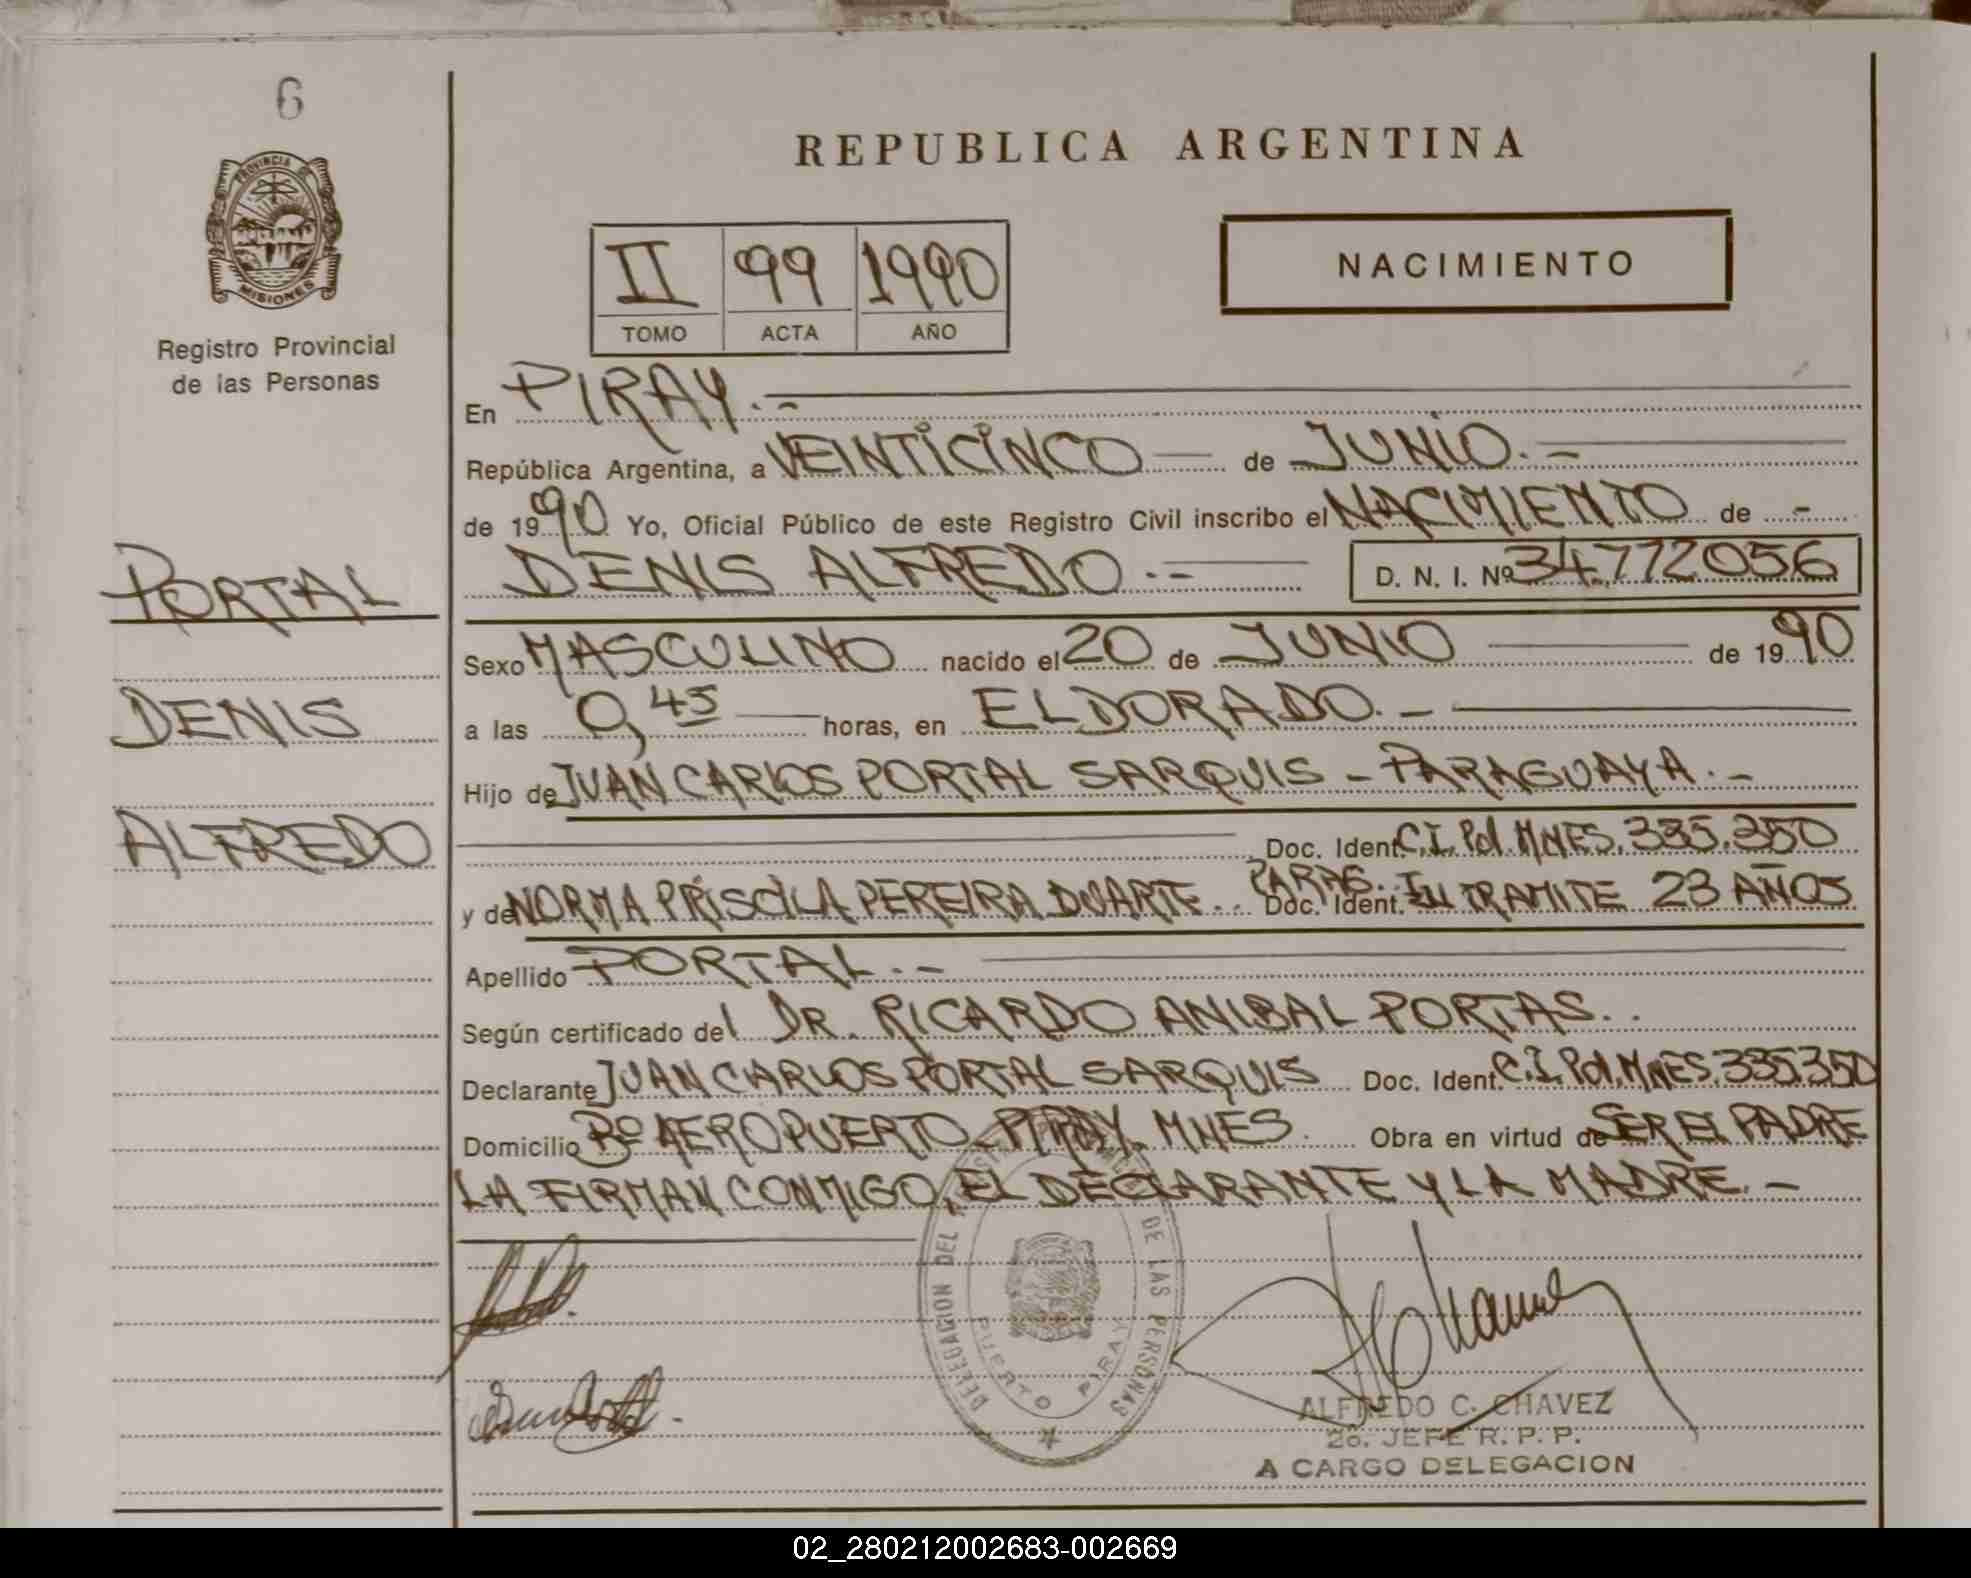 6
PROVINCIA DE
MISIONES
Registro Provincial
de las Personas
PORTAL
DENIS
ALFREDO
REPUBLICA ARGENTINA
II 99 1990
TOMO ACTA AÑO
NACIMIENTO
En PIRAY.-
República Argentina, a VEINTICINCO — de JUNIO.-
de 1990 Yo, Oficial Público de este Registro Civil inscribo el NACIMIENTO de -
DENIS ALFREDO.- D. N. I. Nº 34.772056
Sexo MASCULINO nacido el 20 de JUNIO — de 1990
a las 0,45 — horas, en ELDORADO.-
Hijo de JUAN CARLOS PORTAL SARQUIS - PARAGUAYA.-
Doc. Ident. C.I. Pol. MNES. 335.350
y de NORMA PRISCILA PEREIRA DUARTE.. PARAG. Doc. Ident. EN TRAMITE 23 AÑOS
Apellido PORTAL.-
Según certificado del DR. RICARDO ANIBAL PORTAS..
Declarante JUAN CARLOS PORTAL SARQUIS Doc. Ident. C.I. Pol. MNES. 335350
Domicilio Bº AEROPUERTO - PIRAY. MNES. Obra en virtud de SER EL PADRE
LA FIRMAN CONMIGO, EL DECLARANTE Y LA MADRE.-
DELEGACION DEL DE LAS PERSONAS
PUERTO PIRAY
ALFREDO C. CHAVEZ
2o. JEFE R. P. P.
A CARGO DELEGACION
02_280212002683-002669